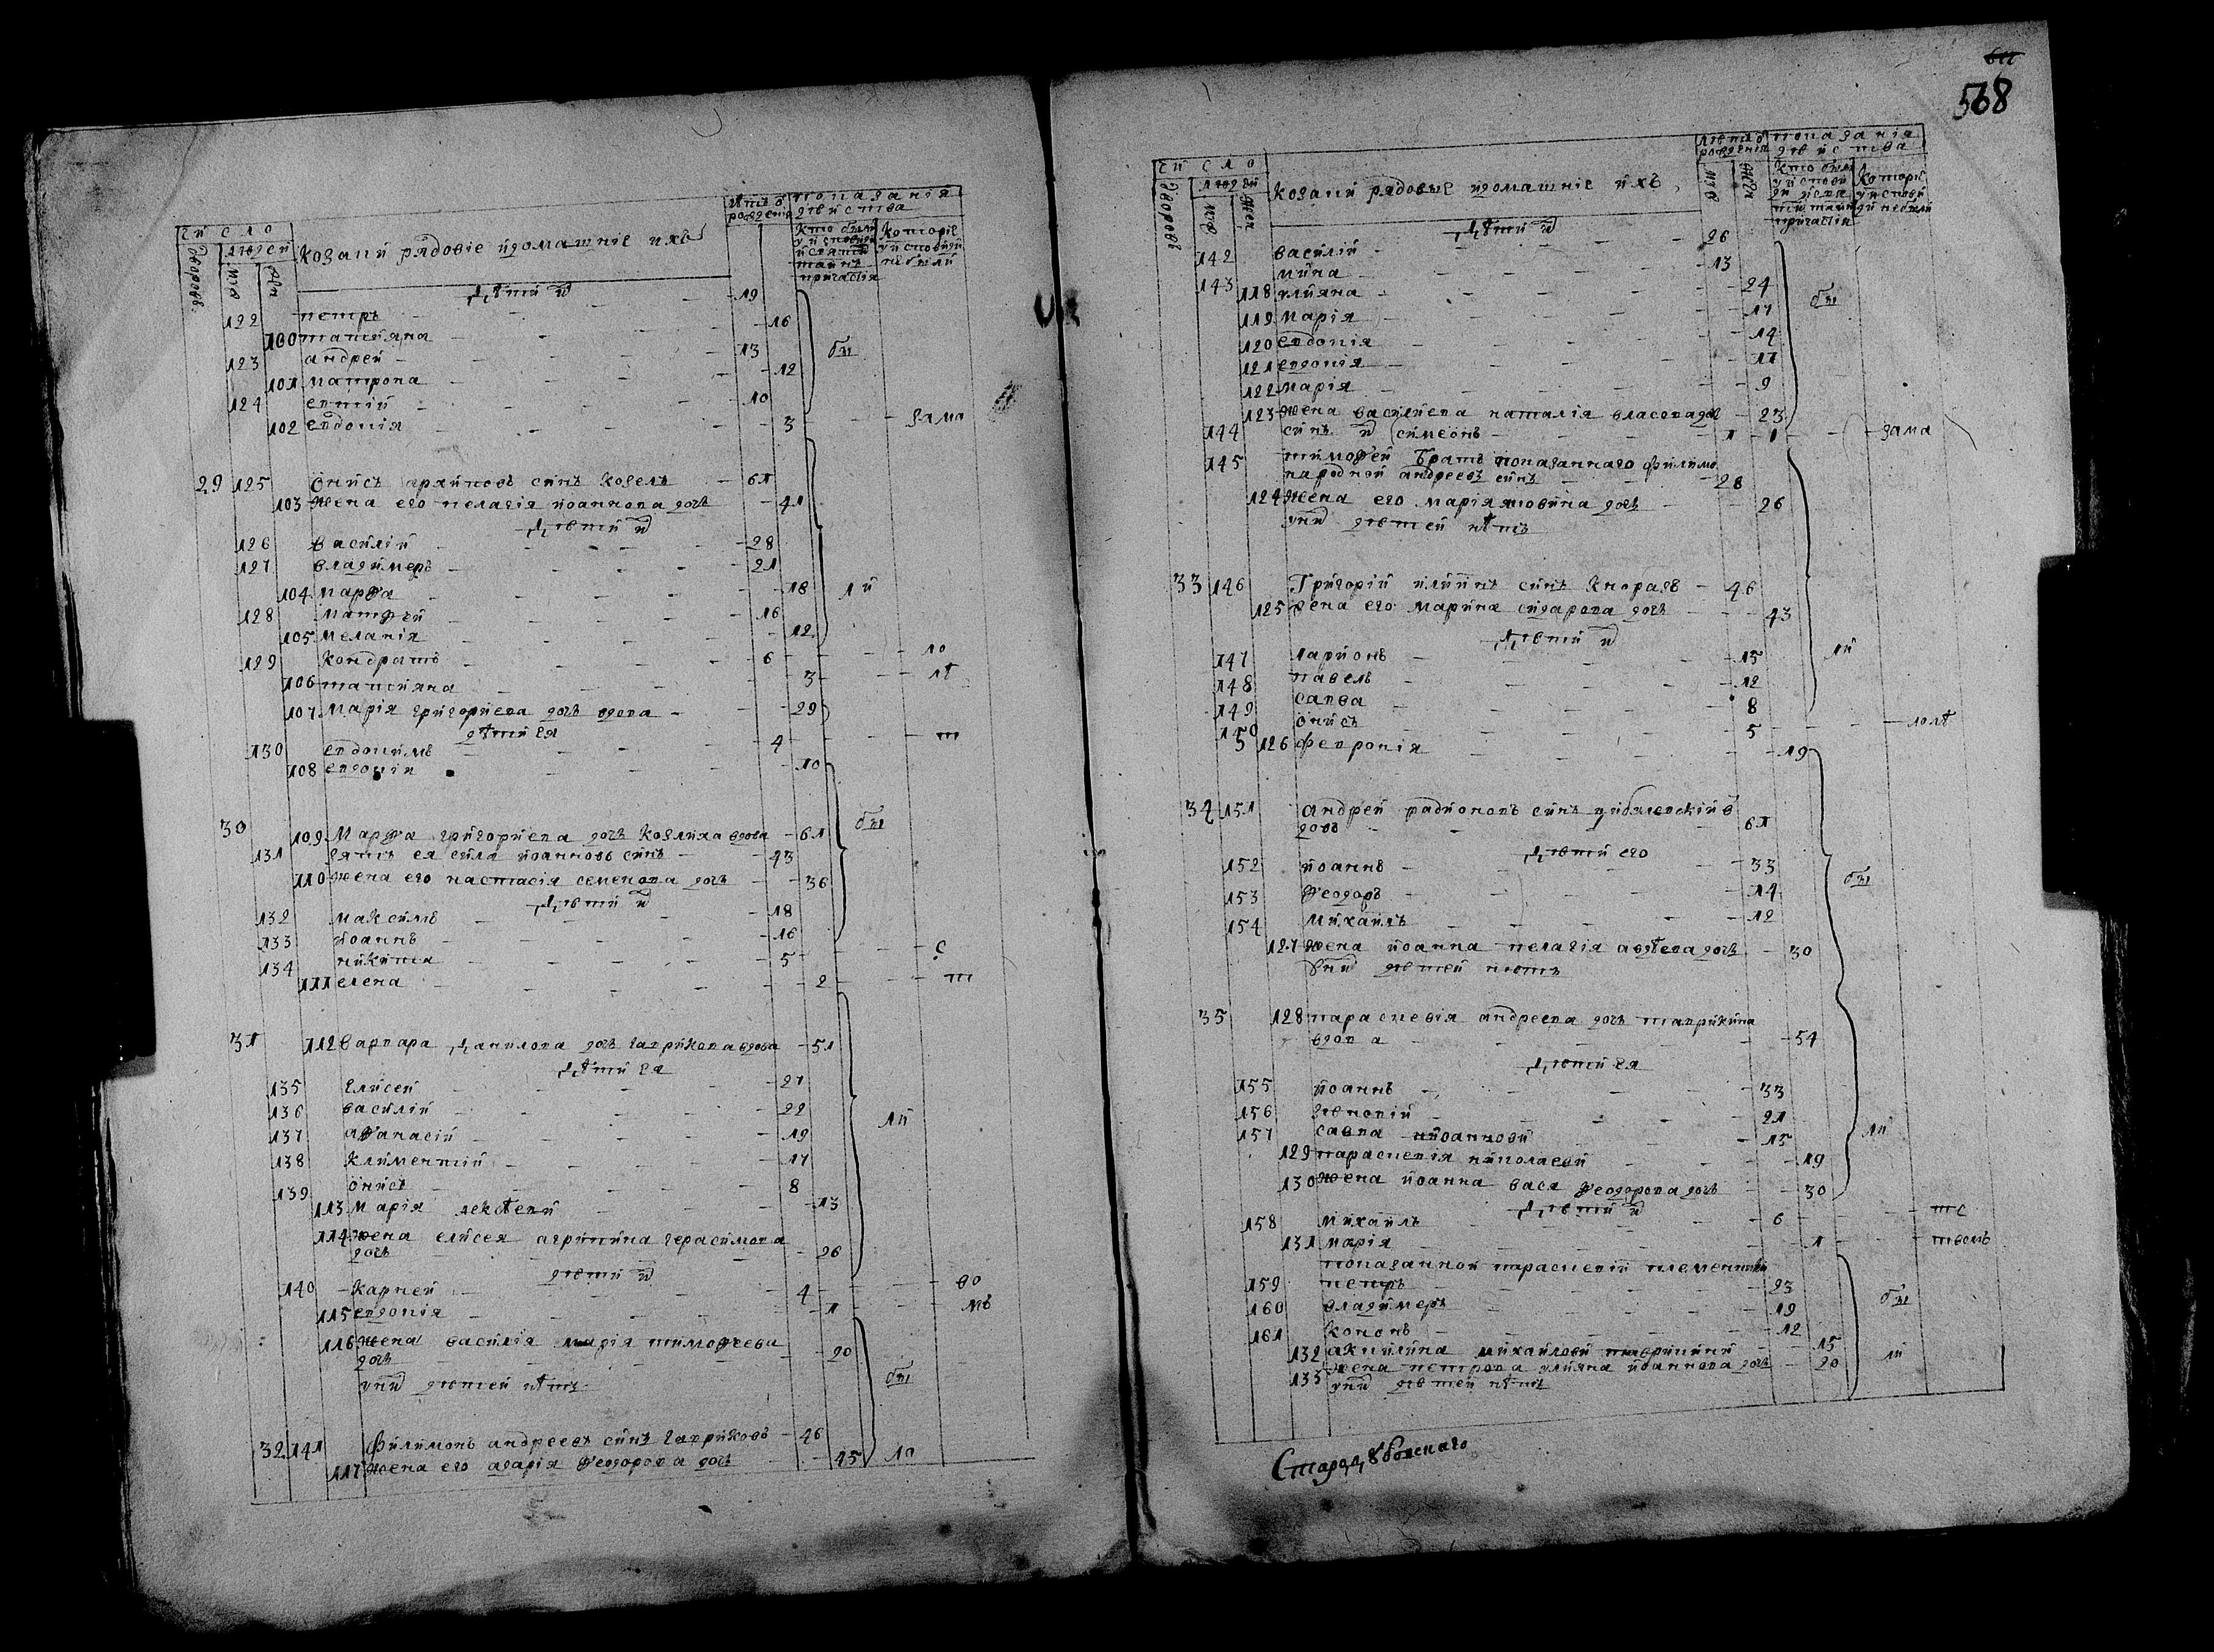 чи сло
дворовъ
людей
муз
жен
козаки рядовіе идомашніе ихъ
лѣта ѿ рожденія
показанія дѣиства
кто были у исповѣди и святихъ таинъ причастія
которіе у исповѣди небили
дѣти их
122 петръ - 19
100 татіяна - 16
123 андрей - 13 бы
101 матрона - 12
124 евтій - 10
102 евдокія - 3 - зама
29 125 онисъ архиповъ синъ козелъ - 61
103 жена его пелагія иоаннова дочъ - 41
дѣти их
126 василій - 28
127 владимеръ - 21
104 марфа - 18 ли
128 матфей - 16
105 меланія - 12
129 кондратъ - 6 - ло
106 татіяна - 3 - лѣ
107 марія григориева дочъ вдова - 29
дѣти ея
130 евдокимъ - 4 - т
108 евдокія - 10
30 109 Марфа григориева дочъ козлиха вдова - 61 бы
131 зять ея сила иоанновъ синъ - 43
110 жена его настасія семенова дочъ - 36
дѣти их
132 максимъ - 18
133 иоаннъ - 16
134 никита - 5 - с
111 елена - 2 - т
31 112 варвара данилова дочъ гаврикова вдова - 51
дѣти ея
135 елисей - 27
136 василій - 22
137 афанасій - 19 ли
138 климентій - 17
139 онисъ - 8
113 марія - 13
114 жена елисея агрипина герасимова дочъ - 26
дѣти их
140 карпей - 4 - во
115 евдокія - 1 - мъ
116 жена василія марія тимофеева дочъ - 20
уних дѣтей нѣтъ бы
32 141 Филимонъ андреевъ синъ гавриковъ - 46
117 жена его агарія феодорова дочъ - 45 ло
568
чи сло
дворовъ
людей
муз
жен
козаки рядовые идомашніе ихъ
лѣта ѿ рожденія
муз
жен
показанія дѣиства
кто были у исповѣди и святихъ таинъ причастія
которіе у исповѣди небили
дѣти их
142 василій - 26
143 мина - 13
118 улияна - 24 бы
119 марія - 17
120 евдокія - 14
121 евдокія - 11
122 марія - 9
123 жена василиева наталія власовадоч - 23
144 синъ их симеонъ - 1 - зама
145 тимофей братъ показанного филимона родной андреевъ синъ - 28
124 жена его марія дочъ - 26
уних дѣтей нѣтъ
33 146 Григорій илиинъ синъ кноразъ - 46
125 жена его марина сидарова дочъ - 43
дѣти их
147 ларионъ - 15 ли
148 павелъ - 12
149 савва - 8
150 онисъ - 5 - лолѣ
126 февронія - 19
34 151 андрей радионовъ синъ вдовъ - 61
дѣти его
152 иоаннъ - 33 бы
153 феодоръ - 14
154 михаилъ - 12
127 жена иоанна пелагія авдѣева дочъ - 30
уних дѣтей нѣтъ
35 128 параскевія андреева дочъ гаврикина вдова - 54
дѣти ея
155 иоаннъ - 33
156 - 21
157 савва иоаннови - 15 ли
129 параскевія николаева - 19
130 жена иоанна васа феодорова дочъ - 30
дѣти их
158 михаилъ - 6 - тс
131 марія - 1 - твомъ
показанной параскевій племенники
159 петръ - 23
160 владимеръ - 19 бы
161 кононъ - 12
132 акилина михаилови - 15
133 жена петрова улияна иоаннова дочъ - 20 ли
уних дѣтей нѣтъ
Стародубовскаго